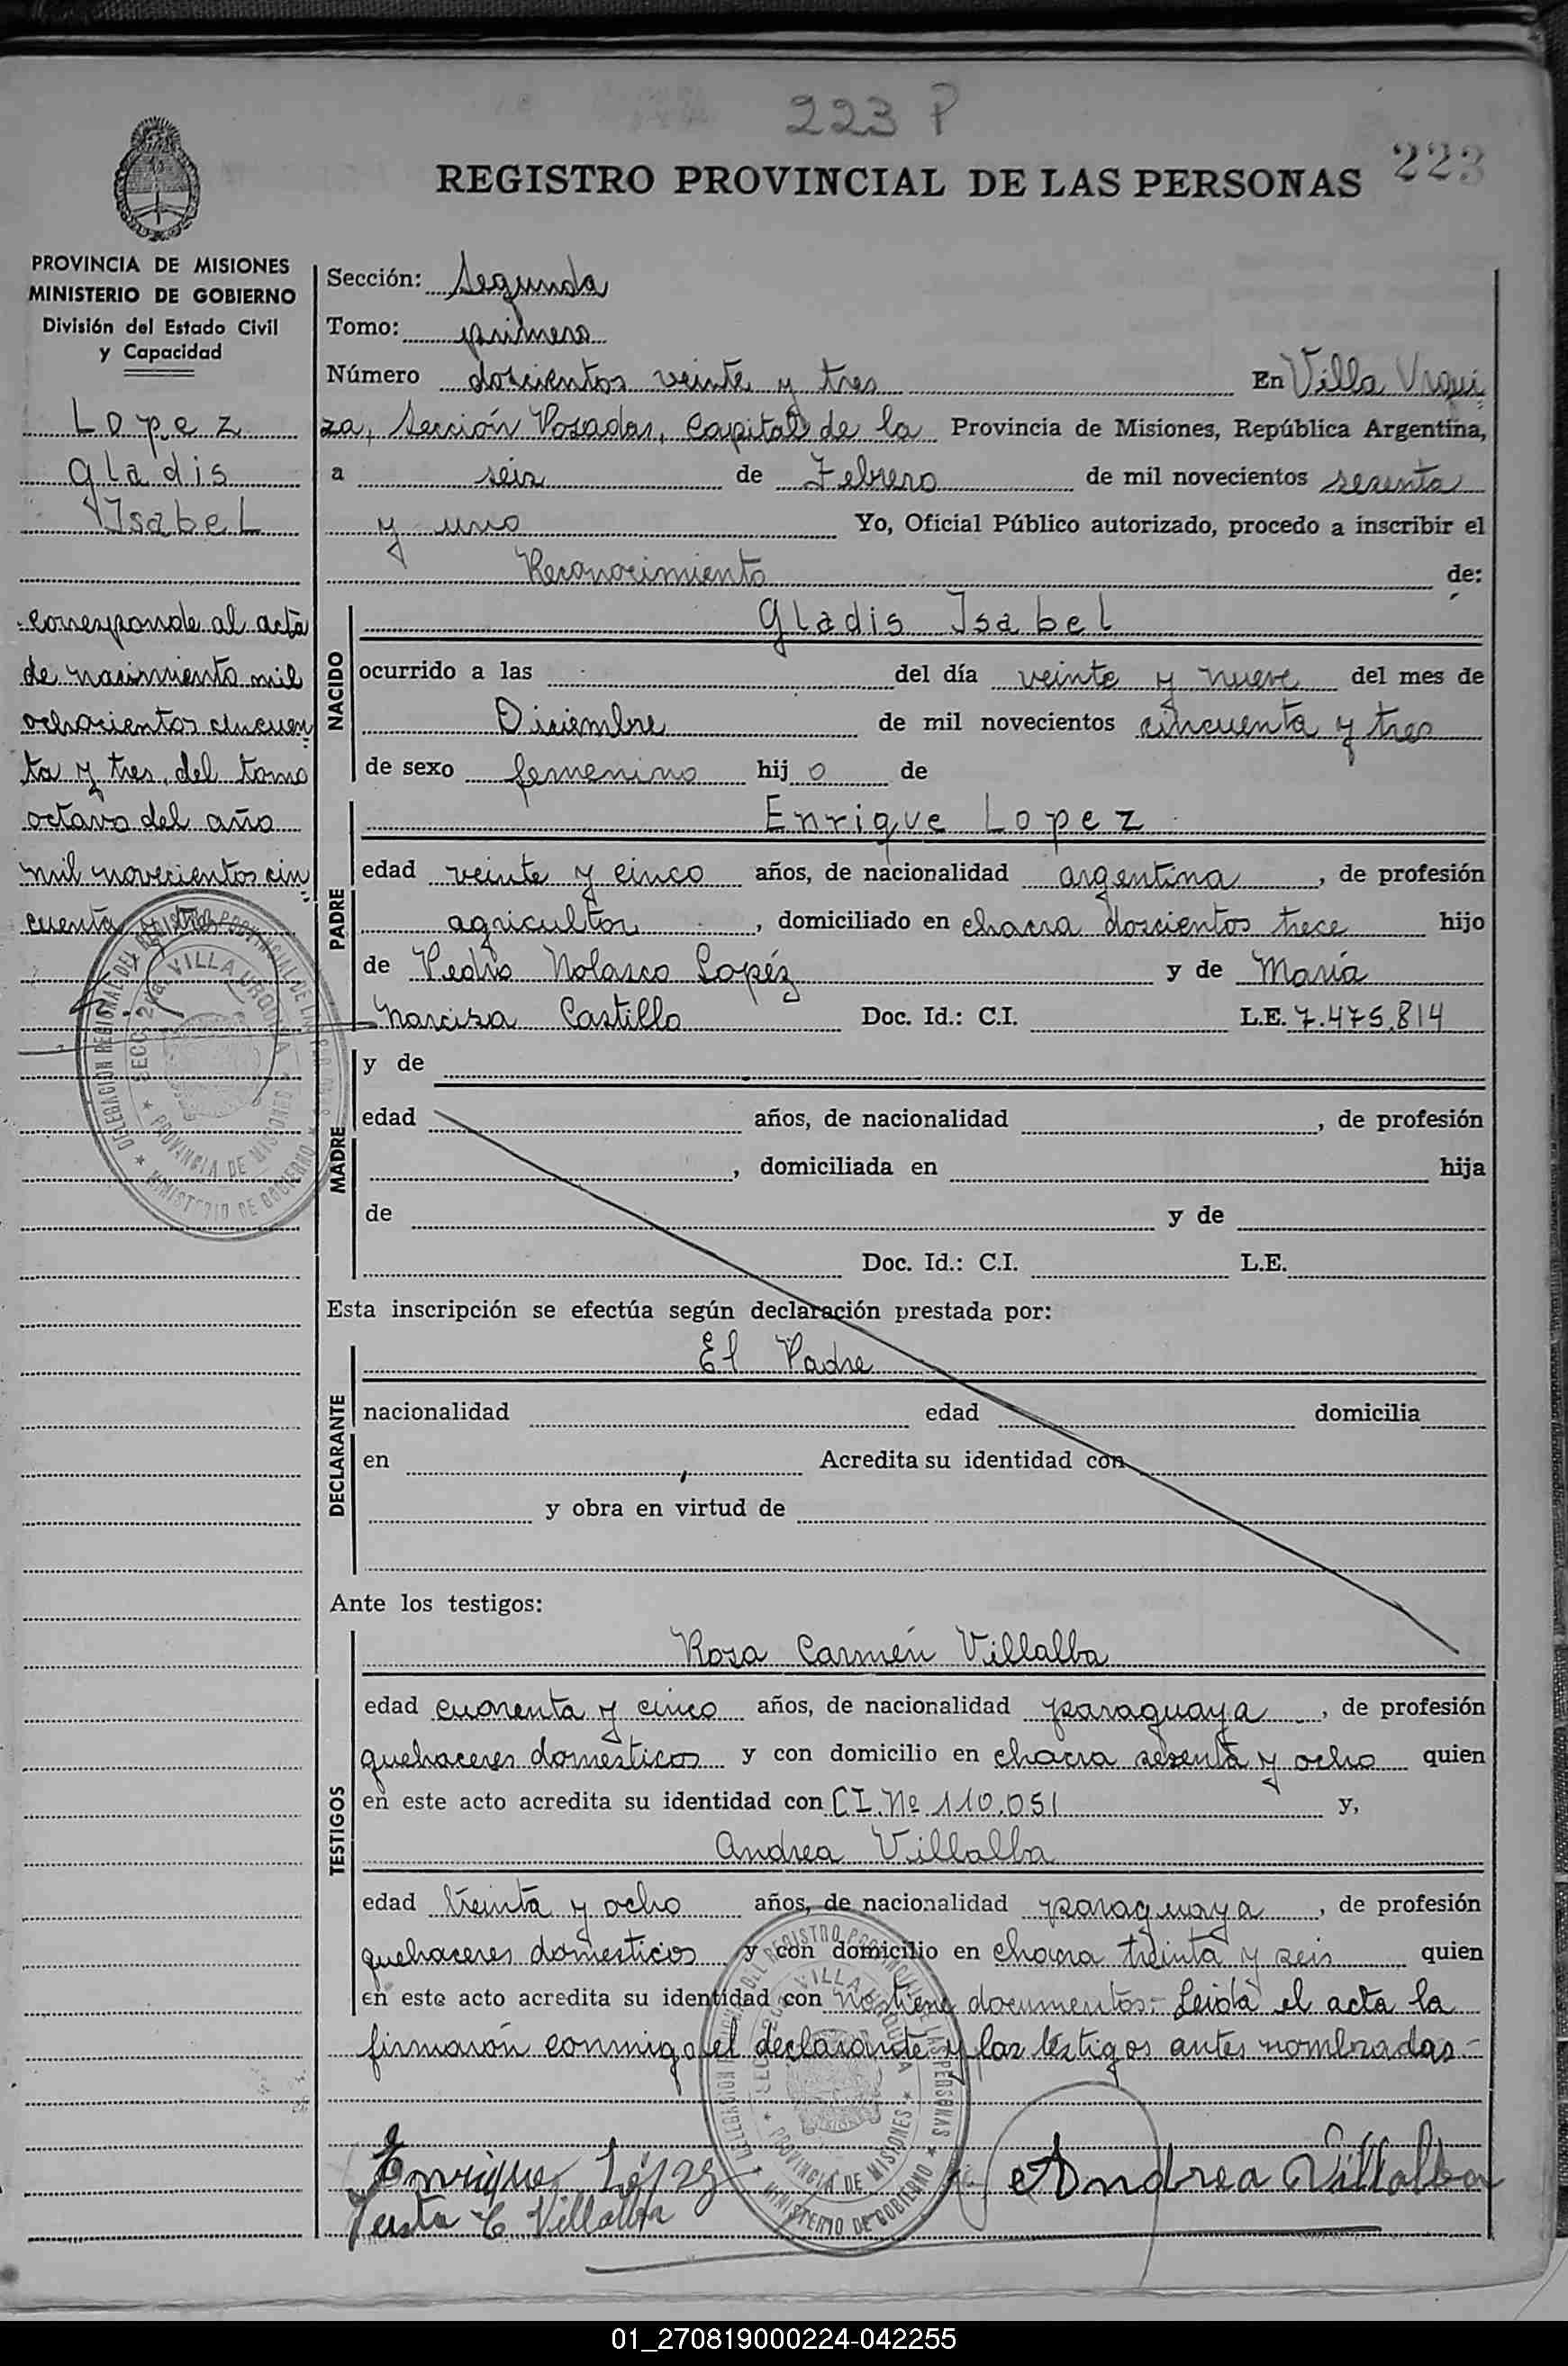 223 P
223
REGISTRO PROVINCIAL DE LAS PERSONAS
PROVINCIA DE MISIONES
MINISTERIO DE GOBIERNO
División del Estado Civil
y Capacidad
Lopez
Gladis
Isabel
corresponde al acta
de nacimiento mil
ochocientos cincuen
ta y tres, del tomo
octavo del año
mil novecientos cin
cuenta y tres
DELEGACION REGIONAL DEL REGISTRO PROVINCIAL DE LAS PERSONAS
SECC. 2da. VILLA URQUIZA
PROVINCIA DE MISIONES
MINISTERIO DE GOBIERNO
Sección: Segunda
Tomo: primero
Número doscientos veinte y tres En Villa Urqui
za, Sección Posadas, Capital de la Provincia de Misiones, República Argentina,
a seis de Febrero de mil novecientos sesenta
y uno Yo, Oficial Público autorizado, procedo a inscribir el
Reconocimiento de:
NACIDO
Gladis Isabel
ocurrido a las del día veinte y nueve del mes de
Diciembre de mil novecientos cincuenta y tres
de sexo femenino hij o de
PADRE
Enrique Lopez
edad veinte y cinco años, de nacionalidad argentina, de profesión
agricultor, domiciliado en chacra doscientos trece hijo
de Pedro Nolasco Lopéz y de María
Narcisa Castillo Doc. Id.: C.I. L.E. 7.475.814
MADRE
y de
edad años, de nacionalidad , de profesión
, domiciliada en hija
de y de
Doc. Id.: C.I. L.E.
Esta inscripción se efectúa según declaración prestada por:
DECLARANTE
El Padre
nacionalidad edad domicilia
en Acredita su identidad con
y obra en virtud de
Ante los testigos:
TESTIGOS
Rosa Carmén Villalba
edad cuarenta y cinco años, de nacionalidad paraguaya, de profesión
quehaceres domésticos y con domicilio en chacra sesenta y ocho quien
en este acto acredita su identidad con C.I. Nº 110.051 y,
Andrea Villalba
edad treinta y ocho años, de nacionalidad paraguaya, de profesión
quehaceres domesticos y con domicilio en chacra treinta y seis quien
en este acto acredita su identidad con no tiene documentos.- Leida el acta la
firmarón conmigo el declarante y las testigos antes nombradas.-
DELEGACION REGIONAL DEL REGISTRO PROVINCIAL DE LAS PERSONAS
SECC. 2da. VILLA URQUIZA
PROVINCIA DE MISIONES
MINISTERIO DE GOBIERNO
Enrique López Andrea Villalba
C Villalba
01_270819000224-042255